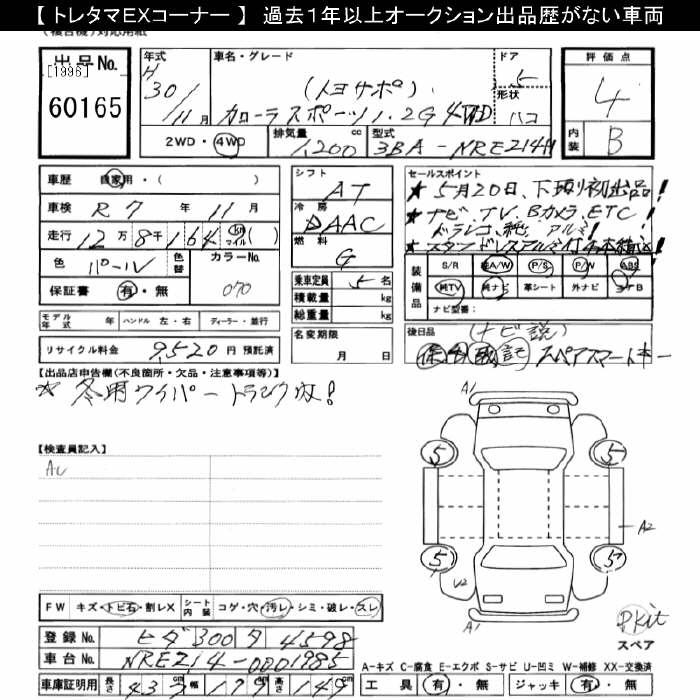 【 トレタマEXコーナー 】 過去1年以上オークション出品歴がない車両
(複合機)対応用紙
出品No. [1996] 60165
年式 H 30/11月
車名・グレード (トヨサポ) カローラスポーツ 1.2G 4WD
ドア 5
形状 ハコ
評価点 4
内装 B
2WD・4WD
排気量 1,200 cc
型式 3BA-NREZ14H
車歴 自家用・( )
車検 R 7 年 11 月
走行 12万8千164 km マイル ( )
色 パール 色替
カラーNo. 070
保証書 有・無
シフト AT
冷房 AAC
燃料 G
乗車定員 5 名
積載量 kg
総重量 kg
セールスポイント
★5月20日、下取り初出品!
★ナビ、TV、Bカメラ、ETC!
ドラレコ、純アルミ!
★スタッドレスアルミ付4本積込!
装備品 S/R 純A/W P/S P/W ABS
純TV 純ナビ 革シート 外ナビ エアB
ナビ型番:
モデル年式 年 ハンドル 左・右 ディーラー・並行
名変期限 月 日
リサイクル料金 9,520 円 預託済
後日品 (ナビ説)
保 取 記 スペアスマートキー
【出品店申告欄(不良箇所・欠品・注意事項等)】
★冬用ワイパートランク内!
【検査員記入】
AU
A1
5 5
A2
5 5
U2
A1
Pkit
スペア
FW キズ・トビ石・割レX シート内装 コゲ・穴・汚レ・シミ・破レ・スレ
登録No. ヒダ 300 タ 4598
車台No. NREZ14-0001985
車庫証明用 長さ 433 幅 179 高さ 149
A-キズ C-腐食 E-エクボ S-サビ U-凹ミ W-補修 XX-交換済
工具 有・無 ジャッキ 有・無